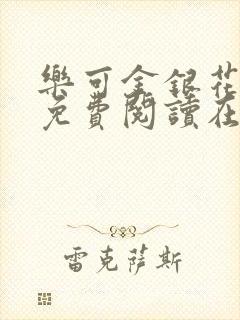 樂可金銀花
免費閱讀在
雷克薩斯